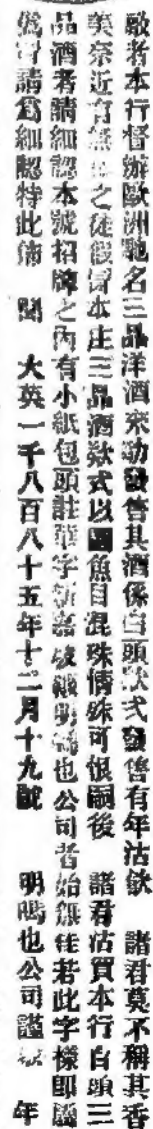 敬者本行督辦歐洲馳名三品洋酒來叻發售其酒係白頭欵式發售有年沽飲 諸君莫不稱其香
美奈近有無之徒假冒本庄三品酒欵式以魚目混珠情殊可恨嗣後 諸君估買本行白頭三
品酒者請細認本號招牌之內有小紙包頭註華字新嘉坡明嗎也公司者始無佳若此字樣即
請爲細認特此佈 聞 大英一千八百八十五年十二月十九號 明嗎也公司謹 年